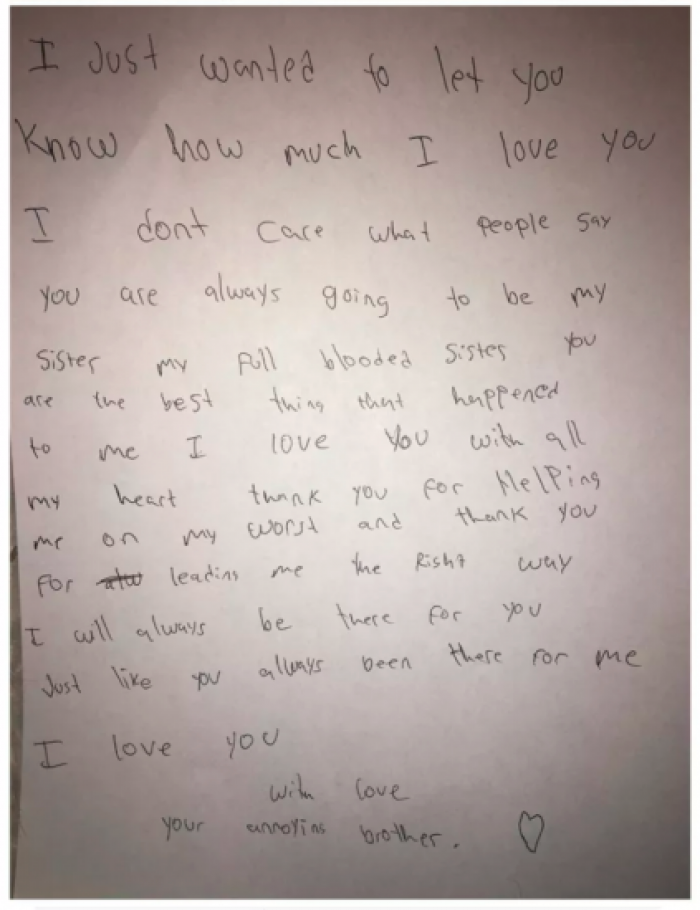 I Just wanted to let you
Know how much I love you
I dont care what people say
you are always going to be my
Sister my full blooded sister you
are the best thing that happened
to me I love you with all
my heart thank you for HelPing
me on my worst and thank you
for leading me the Right way
I will always be there for you
Just like you always been there for me
I love you
with love
your annoying brother.